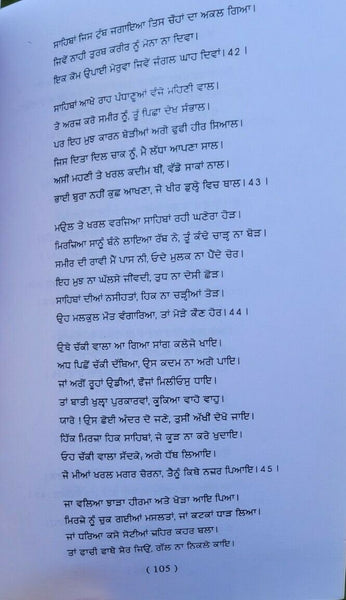 ਸਾਹਿਬਾਂ ਜਿਸ ਟੁੰਬ ਜਗਾਇਆ ਤਿਸ ਚੋਂਹਾਂ ਦਾ ਅਕਲ ਗਿਆ।
ਜਿਵੇਂ ਨਾਹੀ ਤੁਰਬ ਕਰੀਰ ਨੂੰ ਮੋਨਾ ਨਾ ਦਿਵਾ।
ਇਕ ਕੋਮ ਉਪਾਈ ਮੇਰੁਵਾ ਜਿਵੇਂ ਜੰਗਲ ਘਾਹ ਦਿਵਾਂ।42।
ਸਾਹਿਬਾਂ ਆਖੇ ਰਾਹ ਪੰਧਾਣੂਆਂ ਵੰਜੋ ਮਹਿਣੀ ਵਾਲ।
ਤੇ ਅਰਜ਼ ਕਰੋ ਸਮੀਰ ਨੂੰ, ਤੂੰ ਪਿਛਾ ਦੇਖ ਸੰਭਾਲ।
ਪਰ ਇਹ ਮੁਝ ਕਾਰਨ ਬੇੜੀਆਂ ਅਗੇ ਫੂਫੀ ਹੀਰ ਸਿਆਲ।
ਜਿਸ ਦਿਤਾ ਦਿਲ ਚਾਕ ਨੂੰ, ਮੈ ਲੱਧਾ ਆਪਣਾ ਸਾਲ।
ਅਸੀਂ ਮਹਣੀ ਤੇ ਖਰਲ ਕਦੀਮ ਥੀਂ, ਵੱਡੇ ਸਾਕਾਂ ਨਾਲ।
ਭਾਈ ਬੁਰਾ ਨਹੀਂ ਕੁਛ ਆਖਣਾ, ਜੋ ਖੀਰ ਡੁਲ੍ਹੇ ਵਿਚ ਥਾਲ।43।
ਮਉਲ ਤੇ ਖਰਲ ਵਰਜਿਆ ਸਾਹਿਬਾਂ ਰਹੀ ਘਣੇਰਾ ਹੋੜ।
ਮਿਰਜ਼ਿਆ ਸਾਨੂੰ ਬੰਨੇ ਲਾਇਆ ਰੱਬ ਨੇ, ਤੂੰ ਕੰਢੇ ਚਾੜ੍ਹ ਨਾ ਬੋੜ।
ਸਮੀਰ ਦੀ ਰਾਵੀ ਮੈਂ ਪਾਸ ਨੀ, ਓਦੇ ਮੁਲਕ ਨਾ ਪੌਂਦੇ ਚੋਰ।
ਇਹ ਮੁਝ ਨਾ ਘੱਲਸੇ ਜੀਵਦੀ, ਤੁਧ ਨਾ ਦੇਸੀ ਛੋੜ।
ਸਾਹਿਬਾਂ ਦੀਆਂ ਨਸੀਹਤਾਂ, ਹਿਕ ਨਾ ਚੜ੍ਹੀਆਂ ਤੋੜ।
ਉਹ ਮਲਕੁਲ ਮੌਤ ਵੰਗਾਰਿਆ, ਤਾਂ ਮੋੜੇ ਕੌਣ ਹੋਰ।44।
ਉਥੇ ਚੱਕੀ ਵਾਲਾ ਆ ਗਿਆ ਸਾਂਗ ਕਲੇਜੇ ਖਾਇ।
ਅਧ ਪਿਛੋਂ ਚੱਕੀ ਦੱਬਿਆ, ਉਸ ਕਦਮ ਨਾ ਅਗੇ ਪਾਇ।
ਜਾਂ ਅਗੋਂ ਰੂਹਾਂ ਉਡੀਆਂ, ਫੌਜਾਂ ਮਿਲੀਓਸੁ ਧਾਇ।
ਤਾਂ ਬਾਤੀ ਖੁਲ੍ਹਾ ਪੁਰਕਾਰਵਾਂ, ਕੂਕਿਆ ਵਾਹੋ ਵਾਹੁ।
ਯਾਰੋ! ਉਸ ਛੋਈ ਅੰਦਰ ਦੋ ਜਣੇ, ਤੁਸੀਂ ਅੱਖੀਂ ਦੇਖੋ ਜਾਇ।
ਹਿੱਕ ਮਿਰਜ਼ਾ ਹਿਕ ਸਾਹਿਬਾਂ, ਜੇ ਕੂੜ ਨਾ ਕਰੇ ਖੁਦਾਇ।
ਓਹ ਚੱਕੀ ਵਾਲਾ ਸੱਦਕੇ, ਅਗੇ ਧੱਥ ਲਿਆਇ।
ਜੇ ਮੀਆਂ ਖਰਲ ਮਗਰ ਚੋਰਨਾ, ਤੈਨੂੰ ਕਿਥੇ ਨਜ਼ਰ ਪਿਆਇ।45।
ਜਾ ਵਲਿਆ ਝਾੜਾ ਹੀਰਮਾ ਅਤੇ ਖੇੜਾ ਆਇ ਪਿਆ।
ਮਿਰਜ਼ੇ ਨੂੰ ਚੁਕ ਗਈਆਂ ਮਸਲਤਾਂ, ਜਾਂ ਕਟਕਾਂ ਧਾੜ ਲਿਆ।
ਜਾਂ ਧਰਿਆ ਕਸੇ ਸੋਟੀਆਂ ਜ਼ਹਿਰ ਕਹਰ ਬਲਾ।
ਤਾਂ ਫਾਂਚੀ ਫਾਥੇ ਸੇਰ ਜਿਉਂ, ਗੱਲ ਨਾ ਨਿਕਲੇ ਕਾਇ।
(105)